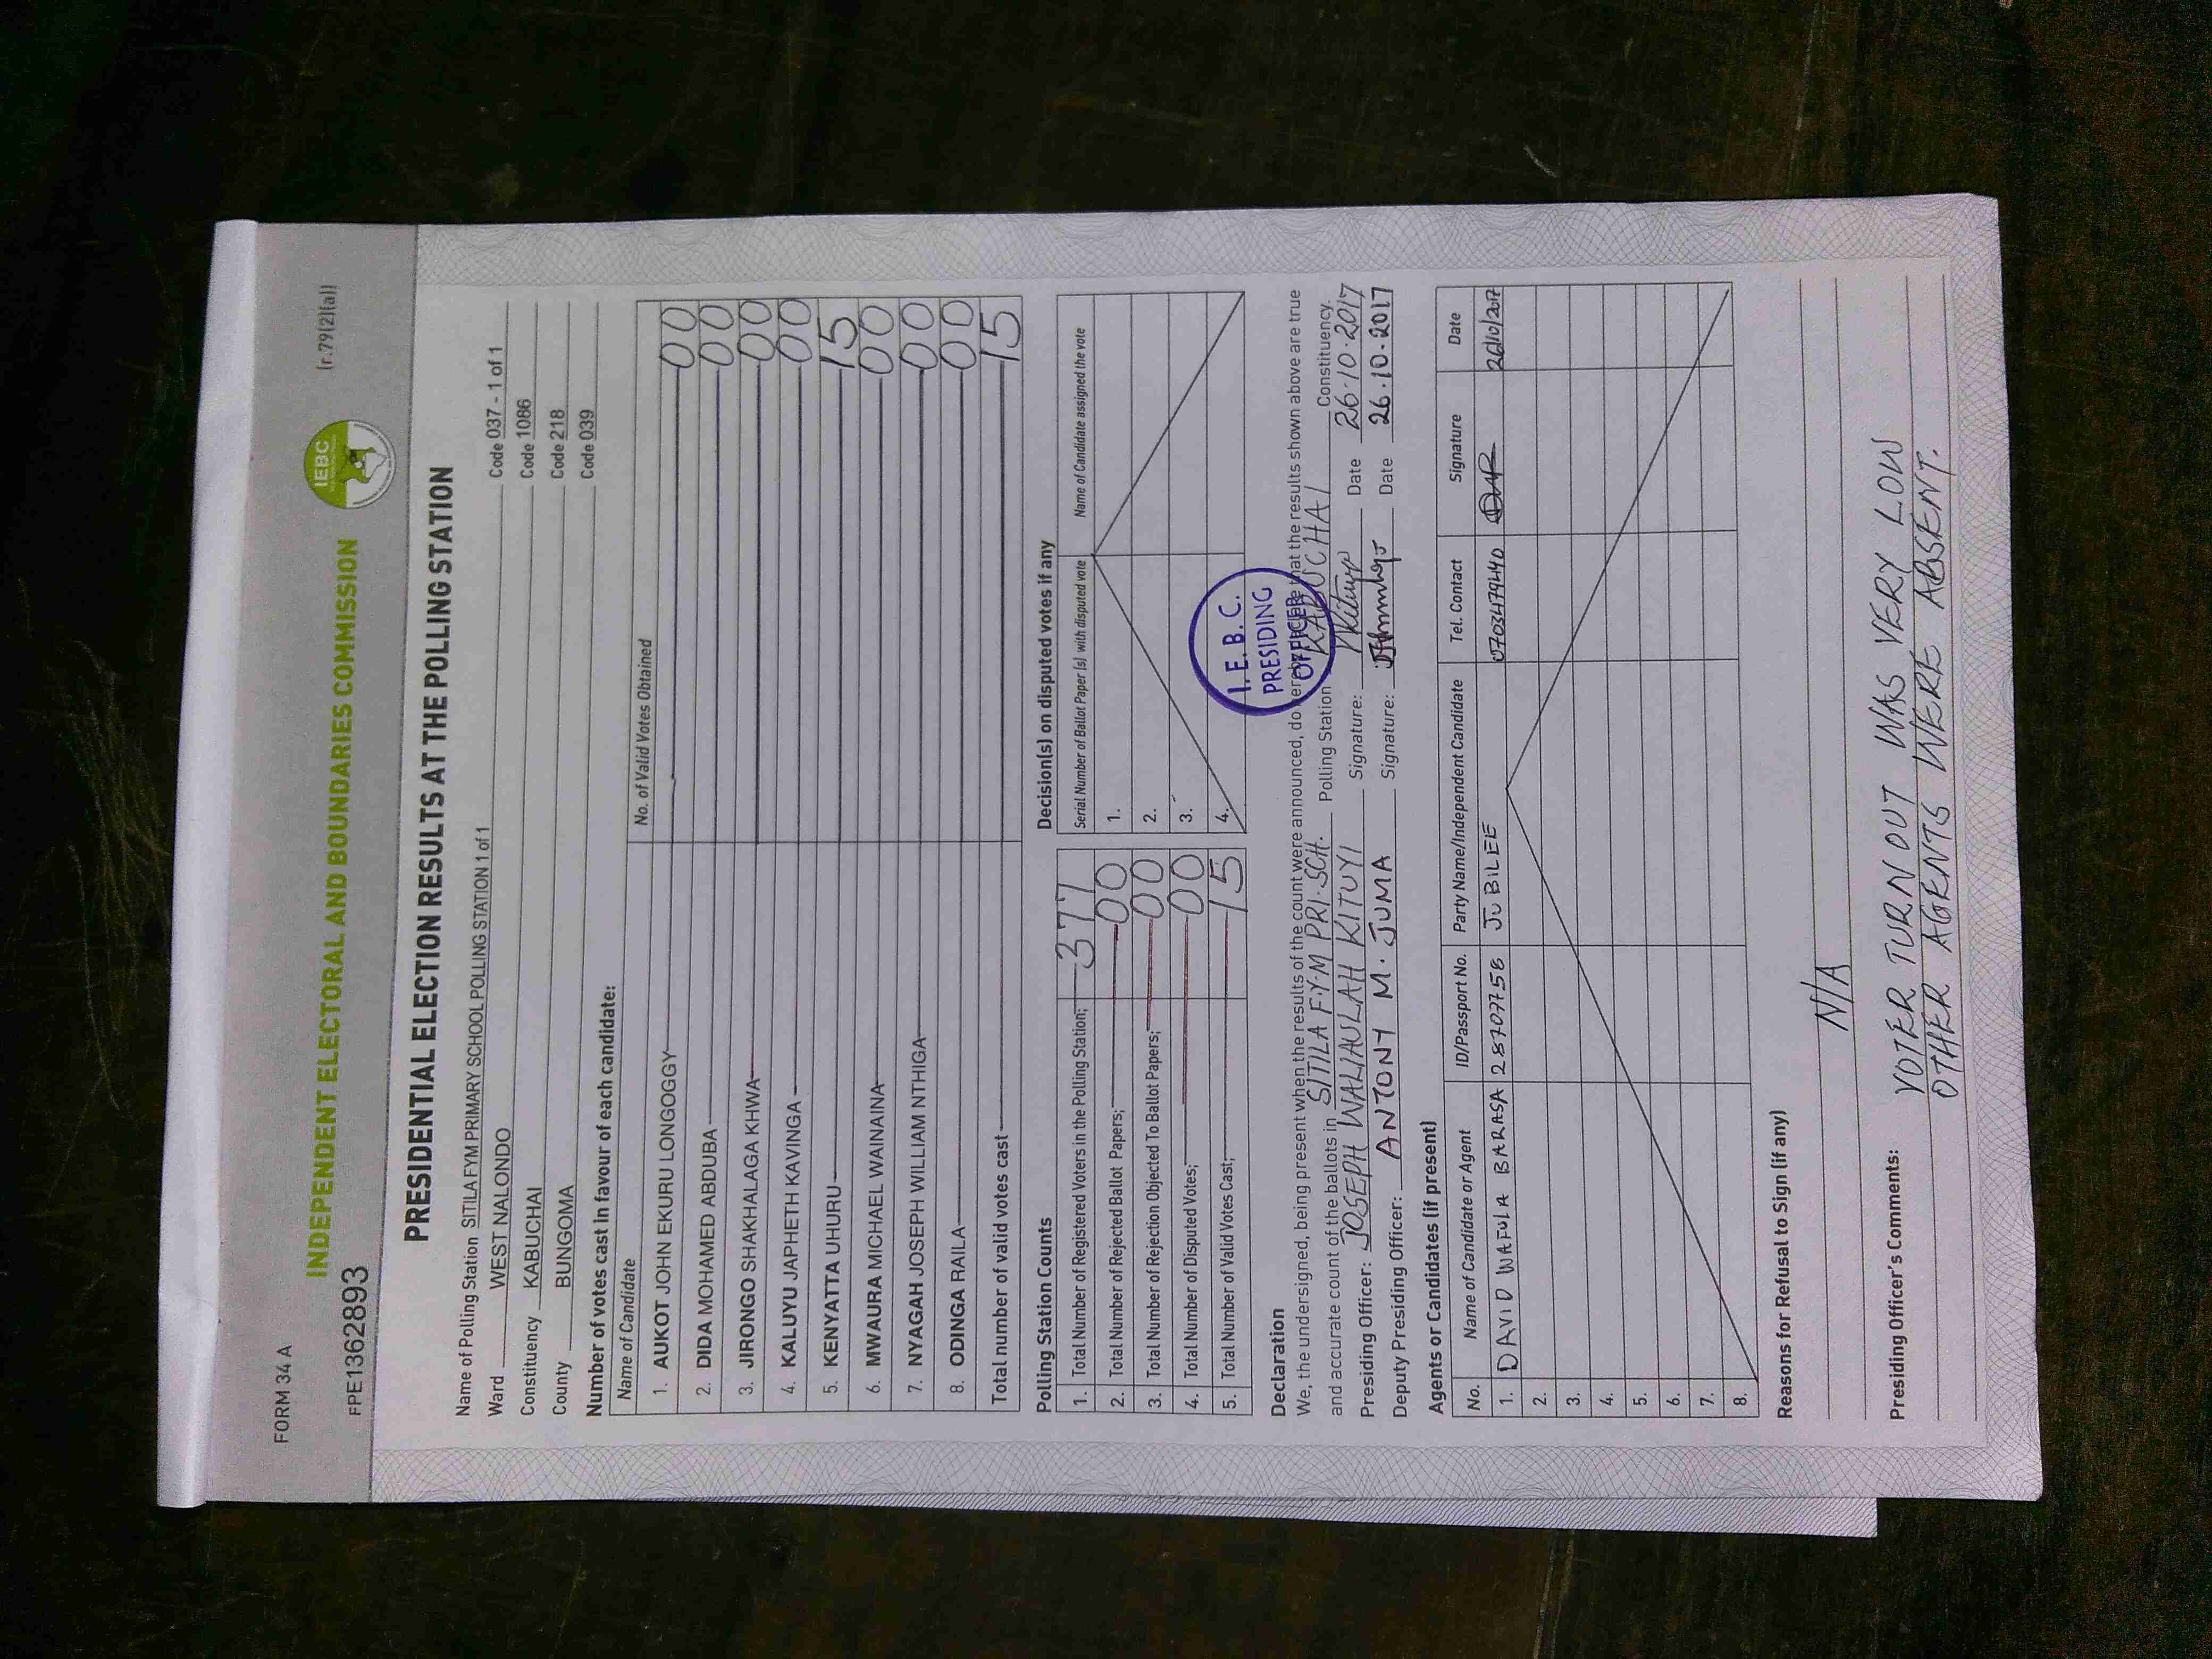 FORM 34 A
(r.79(2)(a))
INDEPENDENT ELECTORAL AND BOUNDARIES COMMISSION
IEBC
FPE1362893
PRESIDENTIAL ELECTION RESULTS AT THE POLLING STATION
Name of Polling Station SITILA FYM PRIMARY SCHOOL POLLING STATION 1 of 1 Code 037 - 1 of 1
Ward WEST NALONDO Code 1086
Constituency KABUCHAI Code 218
County BUNGOMA Code 039
Number of votes cast in favour of each candidate:
Name of Candidate No. of Valid Votes Obtained
1. AUKOT JOHN EKURU LONGOGGY 00
2. DIDA MOHAMED ABDUBA 00
3. JIRONGO SHAKHALAGA KHWA 00
4. KALUYU JAPHETH KAVINGA 00
5. KENYATTA UHURU 15
6. MWAURA MICHAEL WAINAINA 00
7. NYAGAH JOSEPH WILLIAM NTHIGA 00
8. ODINGA RAILA 00
Total number of valid votes cast 15
Polling Station Counts
1. Total Number of Registered Voters in the Polling Station; 377
2. Total Number of Rejected Ballot Papers; 00
3. Total Number of Rejection Objected To Ballot Papers; 00
4. Total Number of Disputed Votes; 00
5. Total Number of Valid Votes Cast; 15
Decision(s) on disputed votes if any
Serial Number of Ballot Paper (s) with disputed vote Name of Candidate assigned the vote
1.
2.
3.
4.
I.E.B.C.
PRESIDING
OFFICER
Declaration
We, the undersigned, being present when the results of the count were announced, do hereby declare that the results shown above are true
and accurate count of the ballots in SITILA F.Y.M PRI. SCH. Polling Station KABUCHAI Constituency.
Presiding Officer: JOSEPH WALIAULAH KITUYI Signature: Kituyi Date 26.10.2017
Deputy Presiding Officer: ANTONY M. JUMA Signature: Date 26.10.2017
Agents or Candidates (if present)
No. Name of Candidate or Agent ID/Passport No. Party Name/Independent Candidate Tel. Contact Signature Date
1. DAVID WAFULA BARASA 28707758 JUBILEE 0703479440 26/10/2017
2.
3.
4.
5.
6.
7.
8.
Reasons for Refusal to Sign (if any)
N/A
Presiding Officer's Comments:
VOTER TURN OUT WAS VERY LOW
OTHER AGENTS WERE ABSENT.